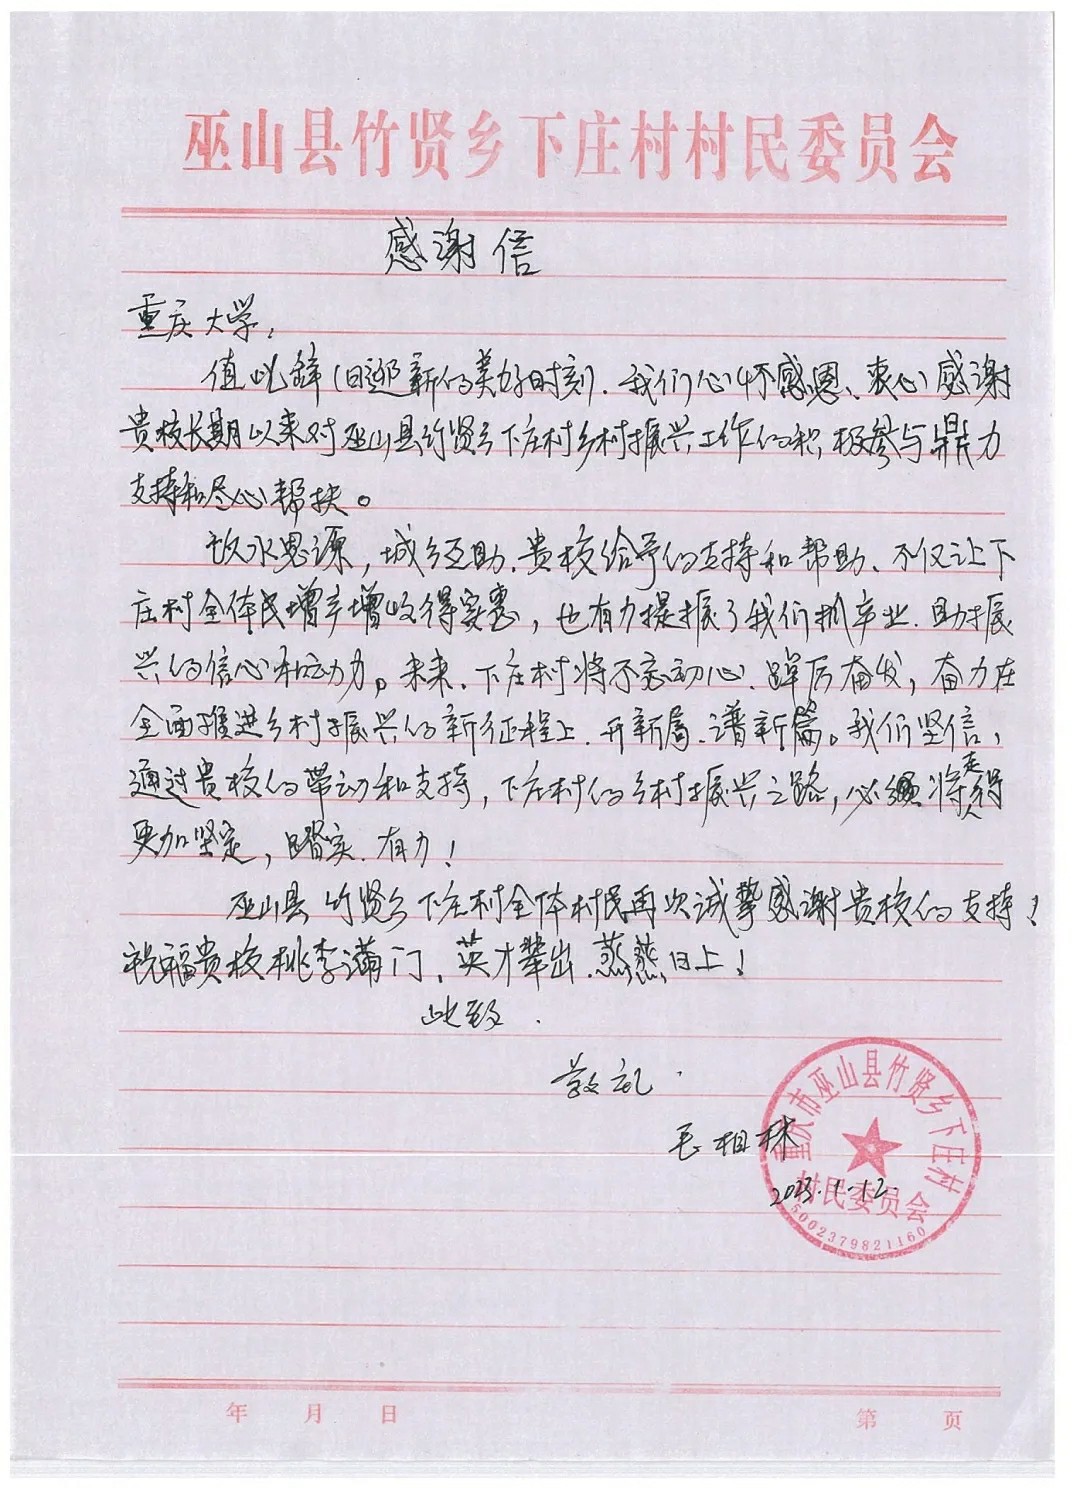 巫山县竹贤乡下庄村村民委员会
感谢信
重庆大学:
值此辞旧迎新的美好时刻，我们心怀感恩、衷心感谢
贵校长期以来对巫山县竹贤乡下庄村乡村振兴工作的积极参与鼎力
支持和尽心帮扶。
饮水思源，城乡互助，贵校给予的支持和帮助、不仅让下
庄村全体民增产增收得实惠，也有力提振了我们抓产业、助振
兴的信心和动力。未来、下庄村将不忘初心、踔厉奋发，奋力在
全面推进乡村振兴的新征程上、开新局、谱新篇。我们坚信，
通过贵校的带动和支持，下庄村的乡村振兴之路，必将走得
更加坚定，踏实、有力！
巫山县竹贤乡下庄村全体村民再次诚挚感谢贵校的支持！
祝福贵校桃李满门、英才辈出、蒸蒸日上！
此致
敬礼
毛相林
2023.1.12.
重庆市巫山县竹贤乡下庄村
村民委员会
5002379821160
年 月 日
第 页